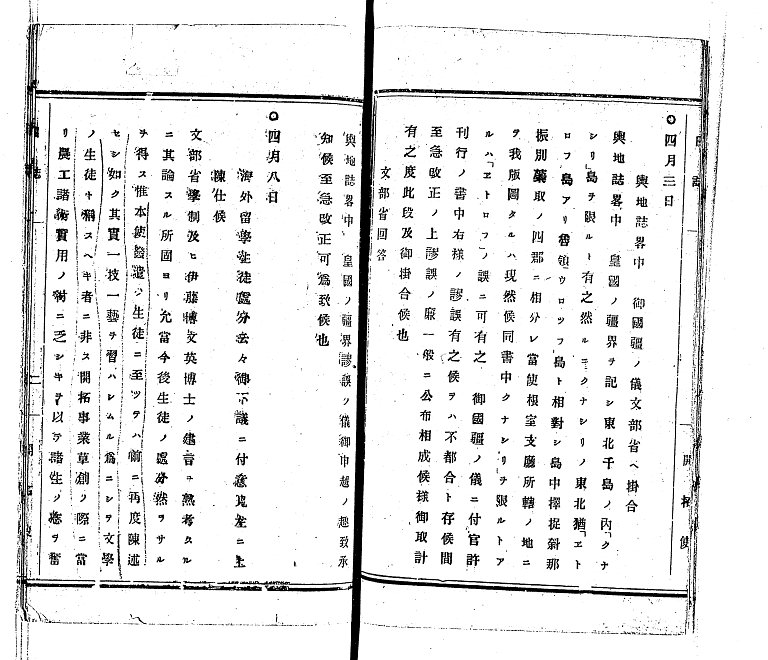 〇四月三日
輿地誌畧中 御國疆ノ儀文部省ヘ掛合
輿地誌畧中 皇國ノ疆界ヲ記シ東北千島ノ内「クナ
シリ」島ヲ限ルト有之然ルニクナシリノ東北猶「ヱト
ロフ」島アリ魯領「ウロツフ」島ト相對シ島中擇捉紗那
振別蘂取ノ四郡ニ相分レ當使根室支廳所轄ノ地ニ
ヲ我版圖タルハ現然候同書中クナシリヲ限ルトア
ルハ「ヱトロフ」ノ誤ニ可有之 御國疆ノ儀ニ付官許
刊行ノ書中右様ノ謬誤有之候ヲハ不都合ト存候間
至急改正ノ上謬誤ノ廉一般ニ公布相成候様御取計
有之度此段及御掛合候也
文部省回答
輿地誌畧中 皇國ノ疆界謬誤ノ儀御申越ノ趣致承
知候至急改正可為致候也
〇四月八日
海外留學生徒處分云々御下議ニ付意見左ニ上
陳仕候
文部省學制及ヒ伊藤博文英博士ノ建言ヲ熟考スル
ニ其論スル所固ヨリ允當今後生徒ノ處分然ヲサル
ヲ得ス惟本使發遣ノ生徒ニ至ツテハ前ニ再度陳述
セシ如ク其實一技一藝ヲ習ハシムル為ニシヲ文學
ノ生徒ト稱スヘキ者ニ非ス開拓事業草創ノ際ニ當
リ農工諸術實用ノ術ニ乏シキヲ以テ諸生ノ志ヲ奮